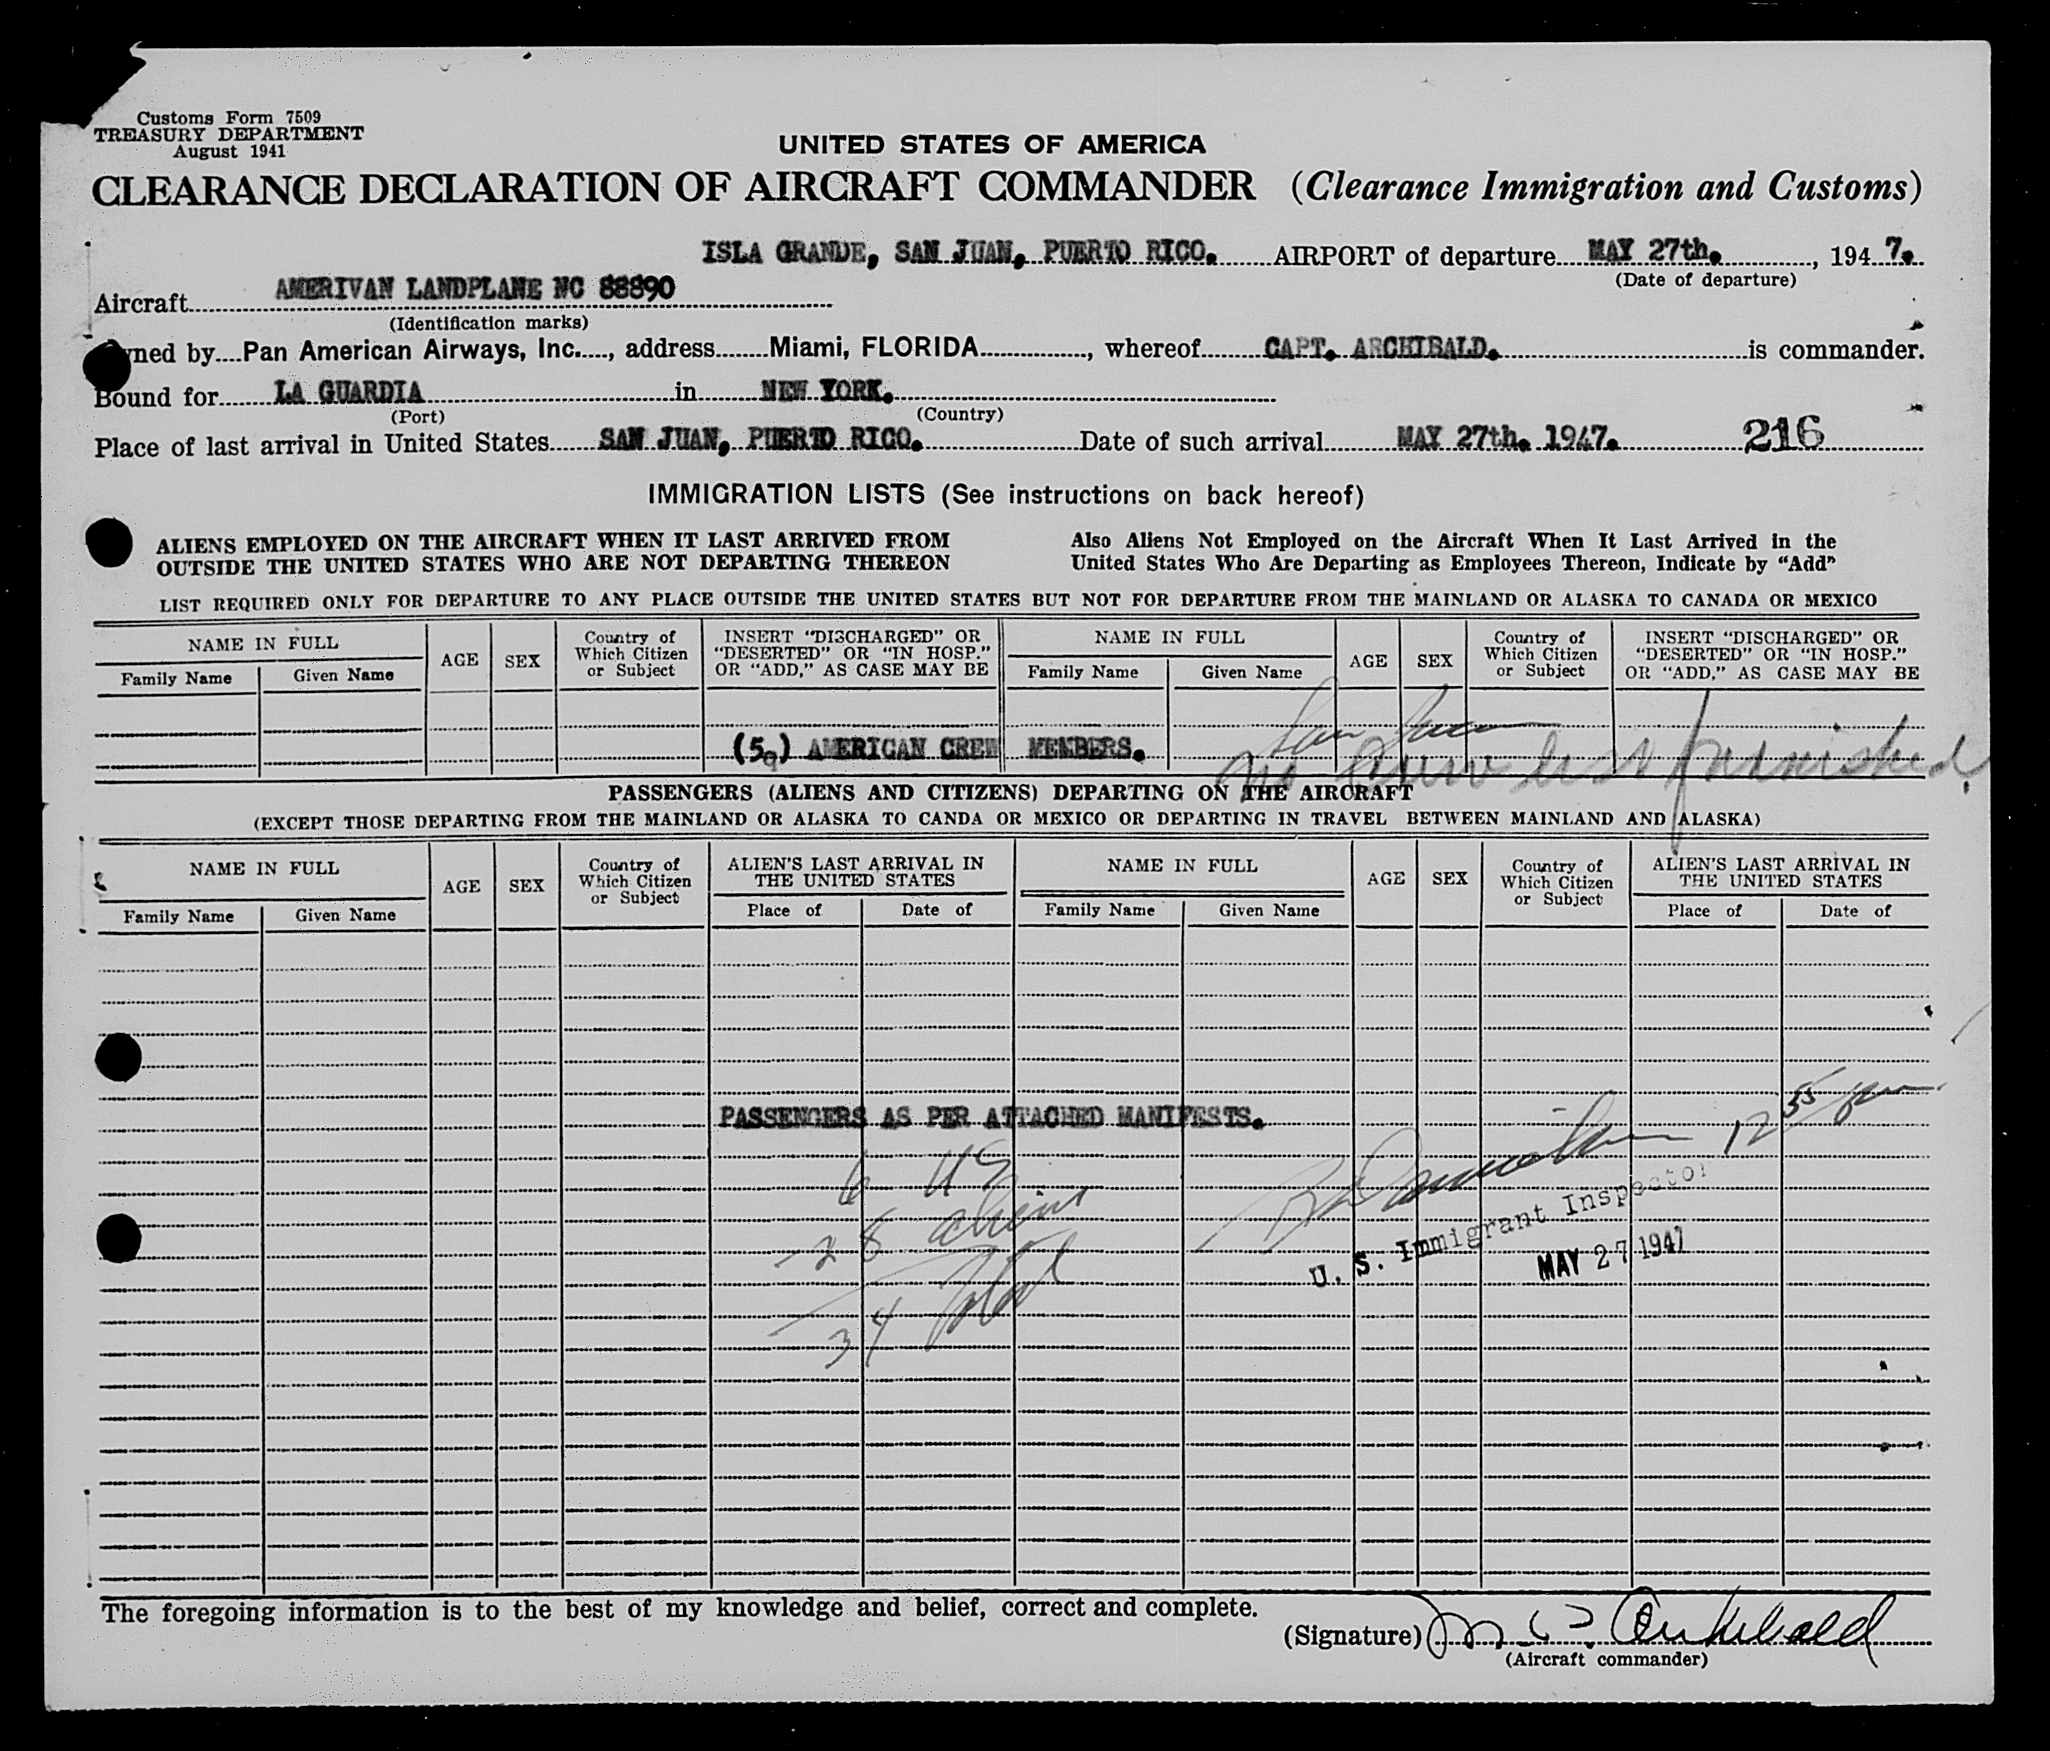 Customs Form 7509
TREASURY DEPARTMENT
August 1941
UNITED STATES OF AMERICA
CLEARANCE DECLARATION OF AIRCRAFT COMMANDER (Clearance Immigration and Customs)
ISLA GRANDE, SAN JUAN, PUERTO RICO. AIRPORT of departure MAY 27th. , 194 7.
(Date of departure)
Aircraft AMERIVAN LANDPLANE NC 88890
(Identification marks)
ned by Pan American Airways, Inc. , address Miami, FLORIDA , whereof CAPT. ARCHIBALD. is commander.
Bound for LA GUARDIA in NEW YORK.
(Port) (Country)
Place of last arrival in United States SAN JUAN, PUERTO RICO. Date of such arrival MAY 27th. 1947. 216
IMMIGRATION LISTS (See instructions on back hereof)
ALIENS EMPLOYED ON THE AIRCRAFT WHEN IT LAST ARRIVED FROM
OUTSIDE THE UNITED STATES WHO ARE NOT DEPARTING THEREON
Also Aliens Not Employed on the Aircraft When It Last Arrived in the
United States Who Are Departing as Employees Thereon, Indicate by “Add”
LIST REQUIRED ONLY FOR DEPARTURE TO ANY PLACE OUTSIDE THE UNITED STATES BUT NOT FOR DEPARTURE FROM THE MAINLAND OR ALASKA TO CANADA OR MEXICO
NAME IN FULL
Family Name Given Name
AGE
SEX
Country of
Which Citizen
or Subject
INSERT “DISCHARGED” OR
“DESERTED” OR “IN HOSP.”
OR “ADD,” AS CASE MAY BE
NAME IN FULL
Family Name Given Name
AGE
SEX
Country of
Which Citizen
or Subject
INSERT “DISCHARGED” OR
“DESERTED” OR “IN HOSP.”
OR “ADD,” AS CASE MAY BE
San Juan
(5) AMERICAN CREW MEMBERS.
No Crew list furnished.
PASSENGERS (ALIENS AND CITIZENS) DEPARTING ON THE AIRCRAFT
(EXCEPT THOSE DEPARTING FROM THE MAINLAND OR ALASKA TO CANDA OR MEXICO OR DEPARTING IN TRAVEL BETWEEN MAINLAND AND ALASKA)
NAME IN FULL
Family Name Given Name
AGE
SEX
Country of
Which Citizen
or Subject
ALIEN'S LAST ARRIVAL IN
THE UNITED STATES
Place of Date of
NAME IN FULL
Family Name Given Name
AGE
SEX
Country of
Which Citizen
or Subject
ALIEN'S LAST ARRIVAL IN
THE UNITED STATES
Place of Date of
PASSENGERS AS PER ATTACHED MANIFESTS.
12 55 pm
6 US
28 aliens
34 Total
U. S. Immigrant Inspector
MAY 27 1947
The foregoing information is to the best of my knowledge and belief, correct and complete.
(Signature) Archibald
(Aircraft commander)